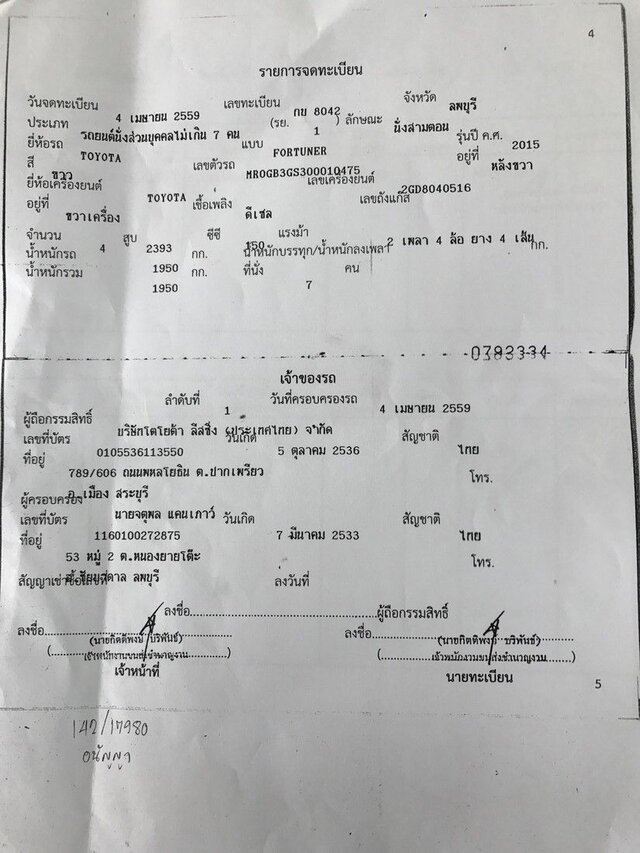 4
รายการจดทะเบียน
วันจดทะเบียน 4 เมษายน 2559 เลขทะเบียน กย 8042 จังหวัด ลพบุรี
ประเภท รถยนต์นั่งส่วนบุคคลไม่เกิน 7 คน (รย. 1 ) ลักษณะ นั่งสามตอน
ยี่ห้อรถ TOYOTA แบบ FORTUNER รุ่นปี ค.ศ. 2015
สี ขาว เลขตัวรถ MR0GB3GS300010475 อยู่ที่ หลังขวา
ยี่ห้อเครื่องยนต์ TOYOTA เลขเครื่องยนต์ 2GD8040516
อยู่ที่ ขวาเครื่อง เชื้อเพลิง ดีเซล เลขถังแก๊ส
จำนวน 4 สูบ 2393 ซีซี 150 แรงม้า 2 เพลา 4 ล้อ ยาง 4 เส้น
น้ำหนักรถ 1950 กก. น้ำหนักบรรทุก/น้ำหนักลงเพลา กก.
น้ำหนักรวม 1950 กก. ที่นั่ง 7 คน
0783334
เจ้าของรถ
ลำดับที่ 1 วันที่ครอบครองรถ 4 เมษายน 2559
ผู้ถือกรรมสิทธิ์ บริษัทโตโยต้า ลีสซิ่ง (ประเทศไทย) จำกัด
เลขที่บัตร 0105536113550 วันเกิด 5 ตุลาคม 2536 สัญชาติ ไทย
ที่อยู่ 789/606 ถนนพหลโยธิน ต.ปากเพรียว โทร.
อ.เมือง สระบุรี
ผู้ครอบครอง นายจตุพล แคนเภาว์
เลขที่บัตร 1160100272875 วันเกิด 7 มีนาคม 2533 สัญชาติ ไทย
ที่อยู่ 53 หมู่ 2 ต.หนองยายโต๊ะ โทร.
อ.ชัยบาดาล ลพบุรี
สัญญาเช่าซื้อเลขที่ ลงวันที่
ลงชื่อ ผู้ถือกรรมสิทธิ์
ลงชื่อ ลงชื่อ
(นายกิตติพงษ์ บริพันธ์) (นายกิตติพงษ์ บริพันธ์)
(เจ้าพนักงานขนส่งชำนาญงาน) (เจ้าพนักงานขนส่งชำนาญงาน)
เจ้าหน้าที่ นายทะเบียน
5
142/17980
อนัญญา